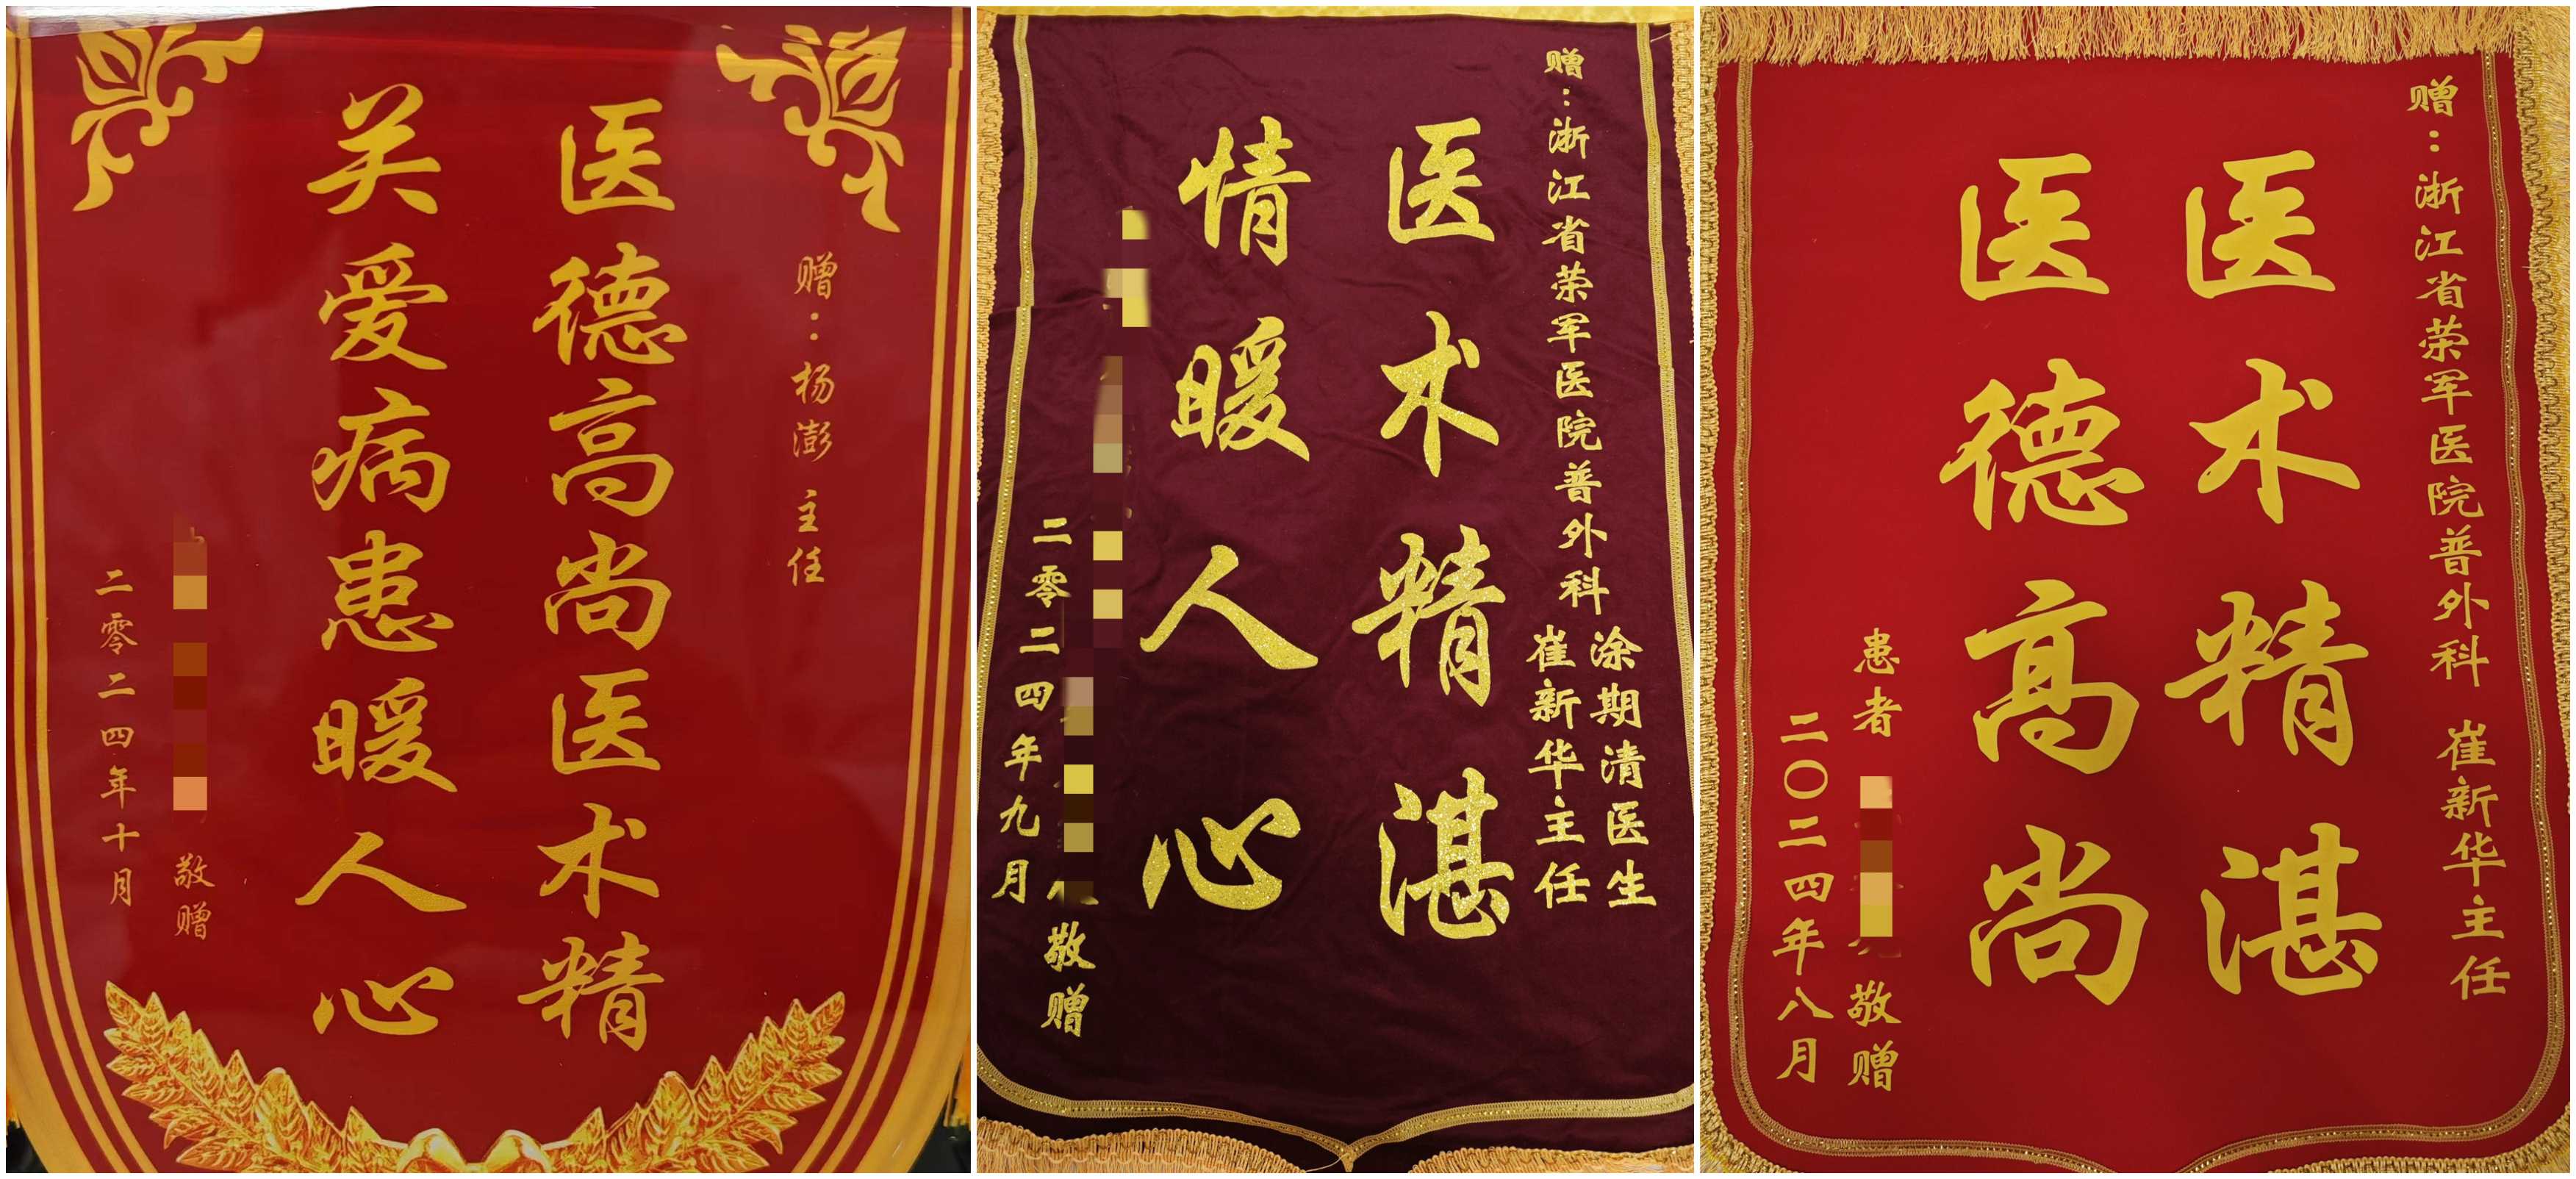 赠：杨澎 主任
医德高尚医术精
关爱病患暖人心
敬赠
二零二四年十月
赠：浙江省荣军医院普外科
涂期清医生
崔新华主任
医术精湛
情暖人心
敬赠
二零二四年九月
赠：浙江省荣军医院普外科 崔新华主任
医术精湛
医德高尚
患者
敬赠
二〇二四年八月